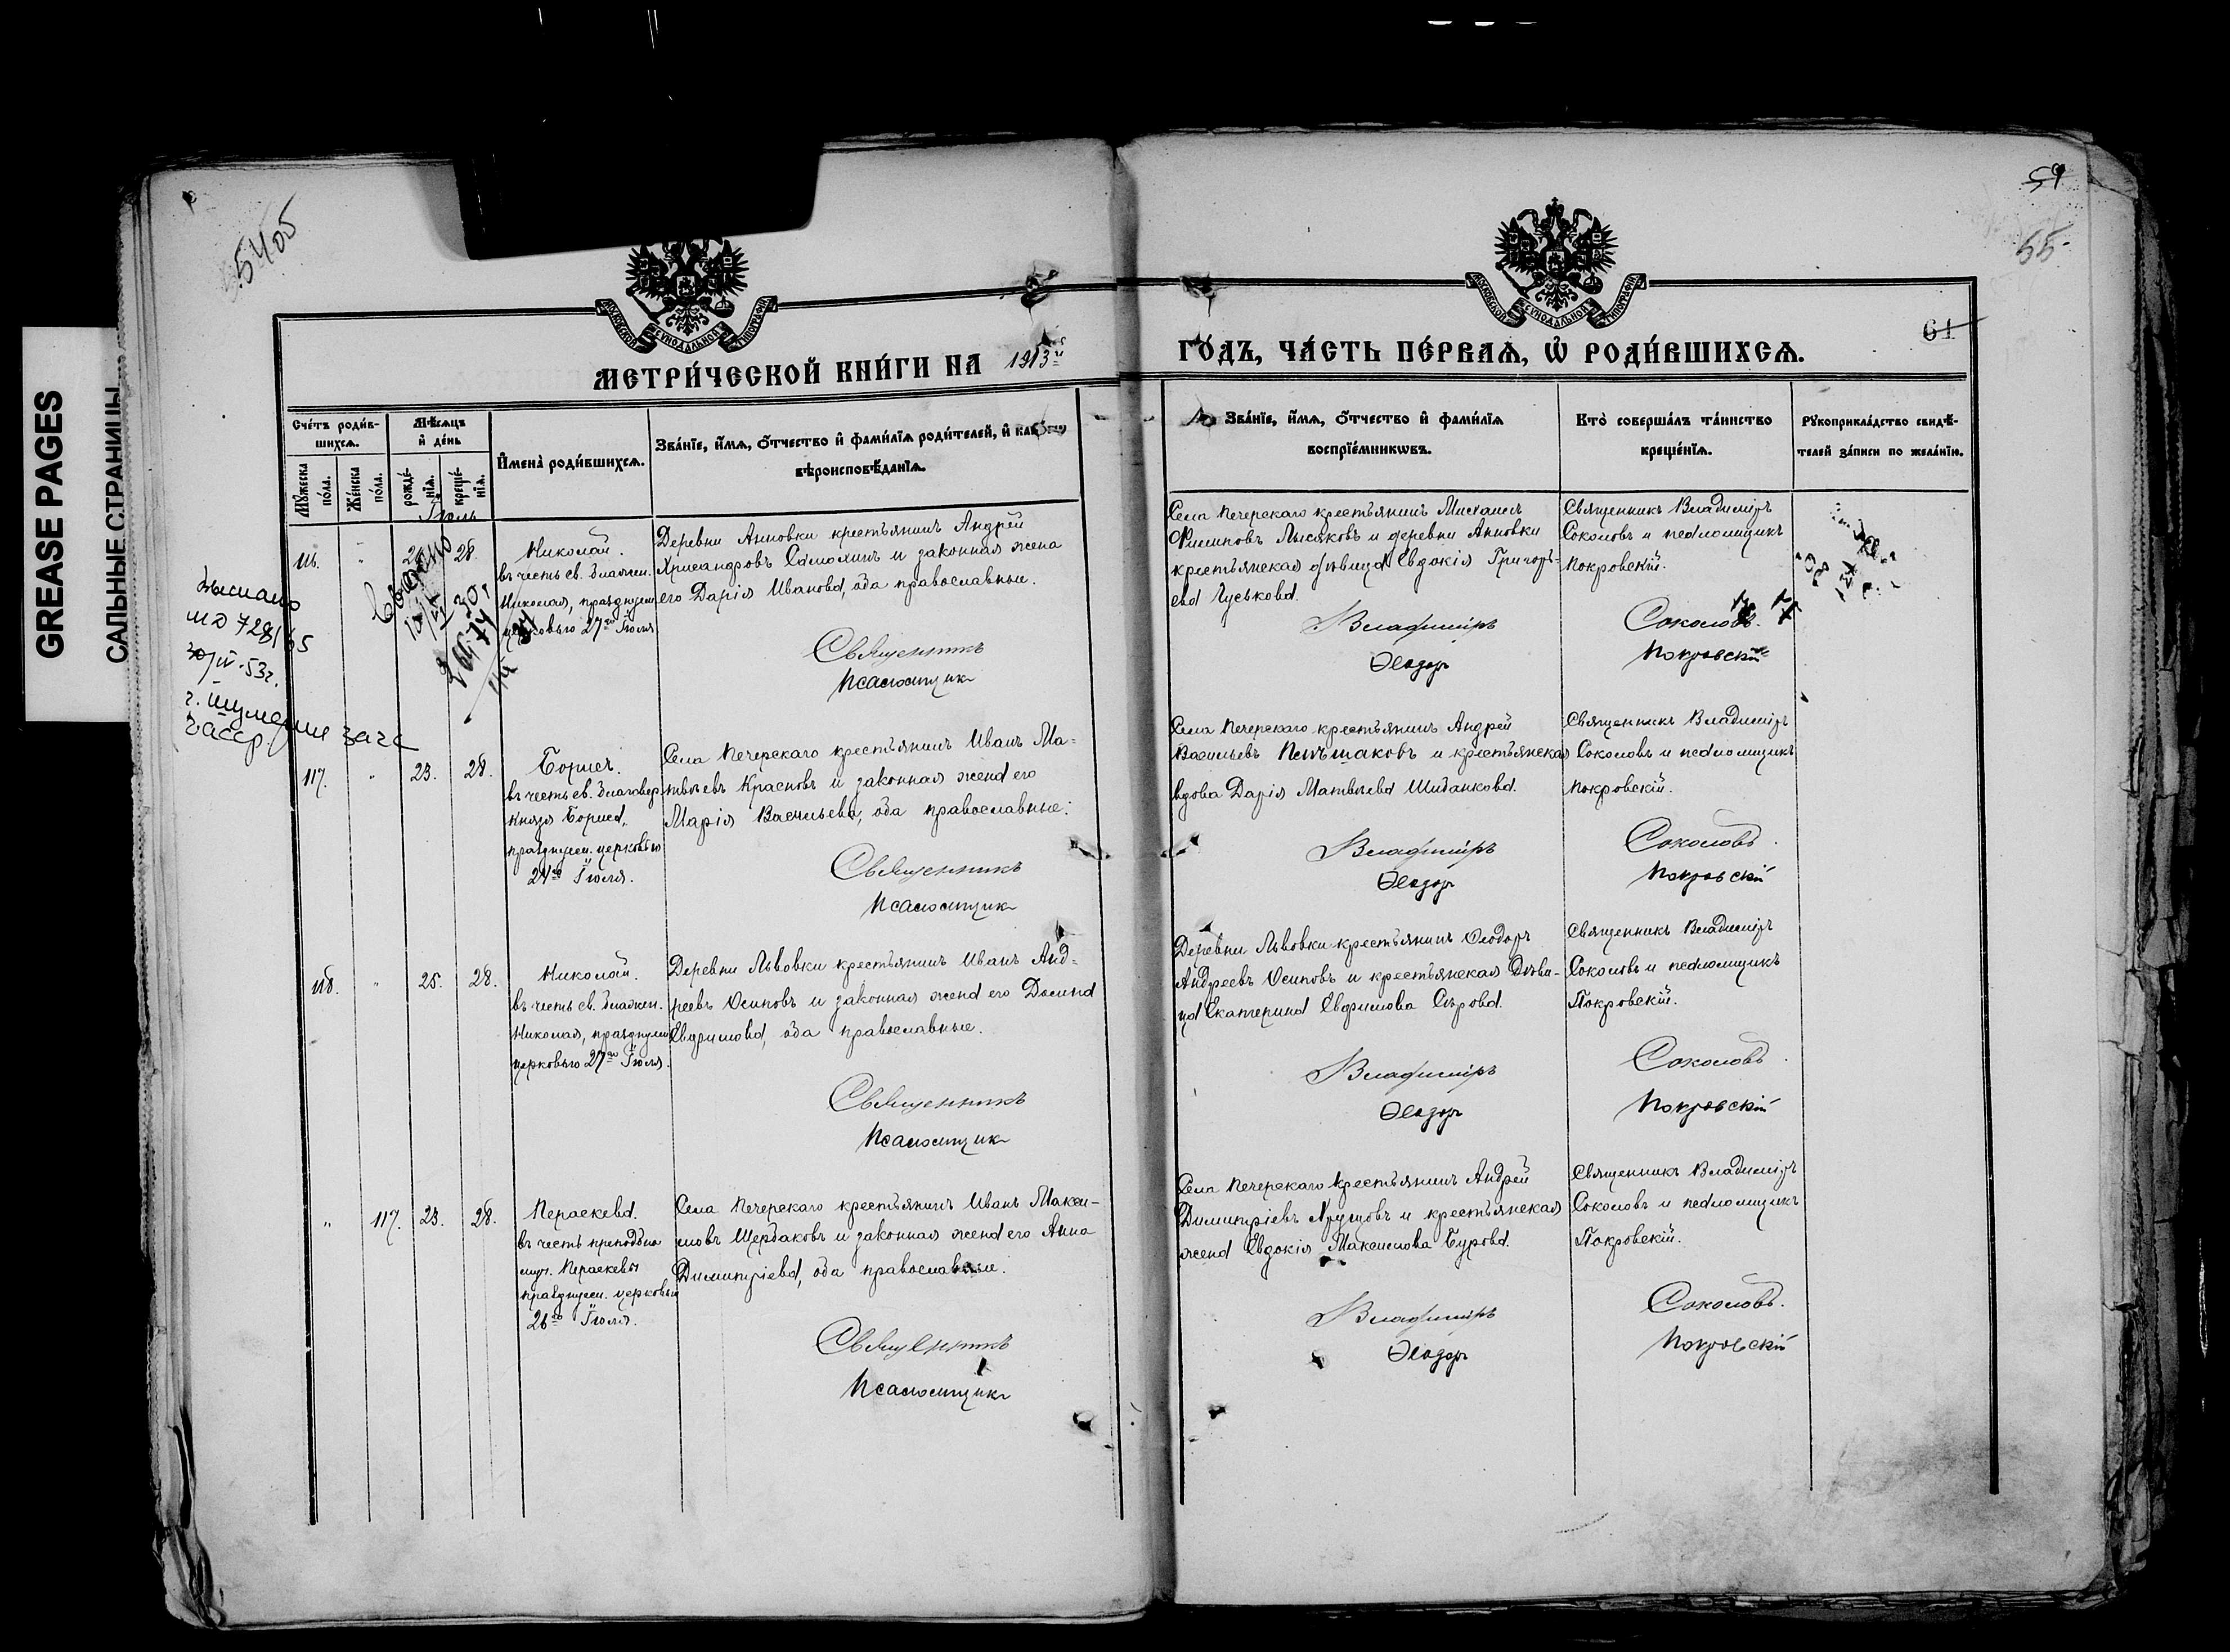 GREASE PAGES
САЛЬНЫЕ СТРАНИЦЫ
5405
59
55
61
МОСКОВСКОЙ СѴНОДАЛЬНОЙ ТИПОГРАФІИ
МОСКОВСКОЙ СѴНОДАЛЬНОЙ ТИПОГРАФІИ
МЕТРИ́ЧЕСКОЙ КНИ́ГИ НА 1913 й
ГО́ДЪ, ЧА́СТЬ ПЕ́РВАЯ, Ѡ РОДИ́ВШИХСЯ.
Сче́тъ роди́в-
шихся.
Мꙋжеска по́ла.
Же́нска по́ла.
Мѣ́сяцъ
и҆ де́нь
рожде́-
нїя.
креще́-
нїя.
И҆мена̀ роди́вшихся.
Зва́нїе, и҆́мя, ѻ҆́тчество и҆ фами́лїя роди́телей, и҆
вѣроисповѣ́данїя.
Зва́нїе, и҆́мя, ѻ҆́тчество и҆ фами́лїя
воспрїе́мникѡвъ.
Кто̀ соверша́лъ та́инство
креще́нїя.
Рꙋкоприкла́дство свидѣ́-
телей за́писи по жела́нїю.
Іюль
116. " 28. Николай.
въ честь св. блажен.
Николая, празднуем.
церковью 27го Іюля.
Деревни Анновки крестьянинъ Андрей
Хрисандровъ Самохинъ и законная жена
его Дарія Иванова, оба православные.
Священникъ
Псаломщик
Села Печерскаго крестьянинъ Михаилъ
Филиповъ Лысяковъ и деревни Анновки
крестьянская дѣвица Евдокія Григорь-
ева Гуськова.
Владиміръ
Ѳеодоръ
Священникъ Владиміръ
Соколовъ и псаломщикъ
Покровскій.
Соколовъ.
Покровскій
30/IV-53г.
117. " 23. 28. Борисъ.
въ честь св. благовер.
Князя Бориса,
празднуем. церковью
24го Іюля.
Села Печерскаго крестьянинъ Иванъ Мат-
вѣевъ Красновъ и законная жена его
Марія Васильева, оба православные.
Священникъ
Псаломщик
Села Печерскаго крестьянинъ Андрей
Васильевъ и крестьянская
вдова Дарія Матвѣева Шибанкова.
Владиміръ
Ѳеодоръ
Священникъ Владиміръ
Соколовъ и псаломщикъ
Покровскій.
Соколовъ.
Покровскій
118. " 25. 28. Николай.
въ честь св. блажен.
Николая, празднуем.
церковью 27го Іюля.
Деревни Львовки крестьянинъ Иванъ Анд-
реевъ Осиповъ и законная жена его Домна
Евфимова, оба православные.
Священникъ
Псаломщик
Деревни Львовки крестьянинъ Ѳеодоръ
Андреевъ Осиповъ и крестьянская дѣви-
ца Екатерина Евфимова Сѣрова.
Владиміръ
Ѳеодоръ
Священникъ Владиміръ
Соколовъ и псаломщикъ
Покровскій.
Соколовъ.
Покровскій
" 117. 23. 28. Параскева.
въ честь преподобно
муч. Параскевы
празднуем. церковью
26го Іюля.
Села Печерскаго крестьянинъ Иванъ Макси-
мовъ Щербаковъ и законная жена его Анна
Димитріева, оба православные.
Священникъ
Псаломщик
Села Печерскаго крестьянинъ Андрей
Димитріевъ Хрущовъ и крестьянская
жена Евдокія Максимова Бурова.
Владиміръ
Ѳеодоръ
Священникъ Владиміръ
Соколовъ и псаломщикъ
Покровскій.
Соколовъ.
Покровскій